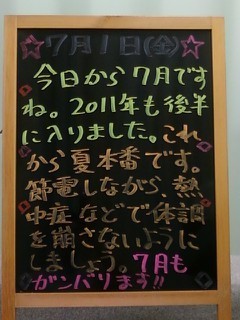 ☆7月1日(金)☆
今日から7月です
ね。2011年も後半
に入りました。これ
から夏本番です。
節電しながら、熱
中症などで体調
を崩さないように
しましょう。7月も
ガンバります!!